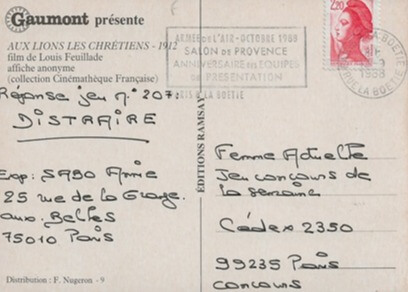 Gaumont présente
AUX LIONS LES CHRÉTIENS - 1912
film de Louis Feuillade
affiche anonyme
(collection Cinémathèque Française)
Réponse jeu n° 207:
DISTRAIRE
Exp: SABO Annie
25 rue de la Grange
aux Belles
75010 Paris
Distribution : F. Nugeron - 9
ÉDITIONS RAMSAY
ARMEE de l'AIR - OCTOBRE 1988
SALON DE PROVENCE
ANNIVERSAIRE des EQUIPES
de PRESENTATION
PARIS LA BOETIE
2,20
LA BOETIE
1988
RUE LA BOETIE
Femme Actuelle
Jeu concours de
la semaine
Cédex 2350
99235 Paris
concours